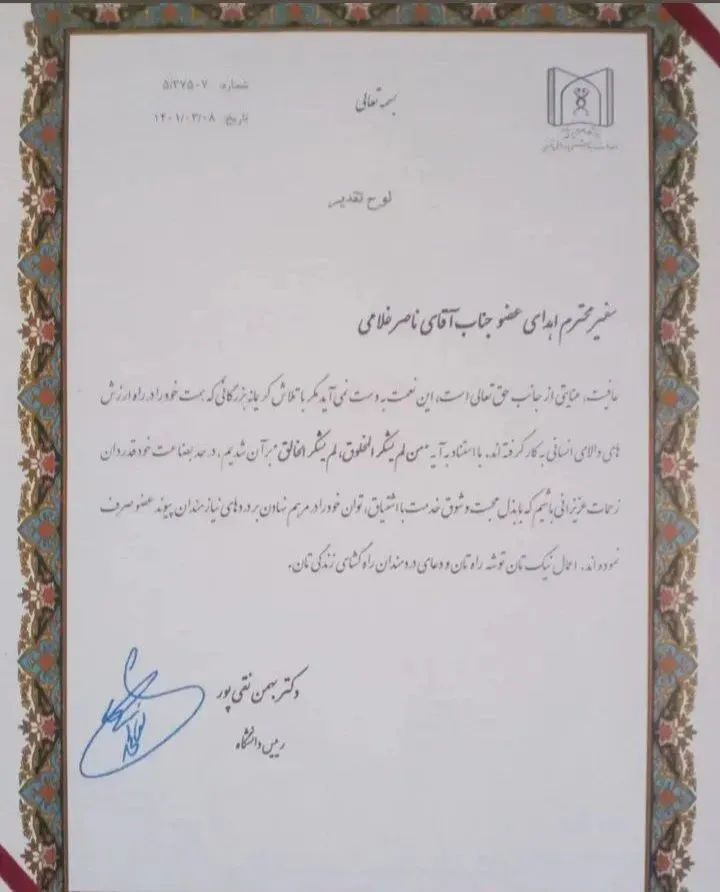 بسمه تعالی
شماره: ۵/۳۷۵۰۷
تاریخ: ۱۴۰۱/۰۳/۰۸
لوح تقدیر
سفیر محترم اهدای عضو جناب آقای ناصر غلامی
عافیت، عنایتی از جانب حق تعالی است، این نعمت به دست نمی آید مگر با تلاش کریمانه بزرگانی که همت خود را در راه ارزش
های والای انسانی به کار گرفته اند. با استناد به آیه "من لم یشکر المخلوق، لم یشکر الخالق" بر آن شدیم، در حد بضاعت خود قدردان
زحمات عزیزانی باشیم که با بذل محبت و شوق خدمت با اشتیاق، توان خود را در مرهم نهادن بر دردهای نیازمندان پیوند عضو صرف
نموده اند. اعمال نیک تان توشه راه تان و دعای دردمندان راه گشای زندگی تان.
دکتر بهمن نقی پور
رییس دانشگاه